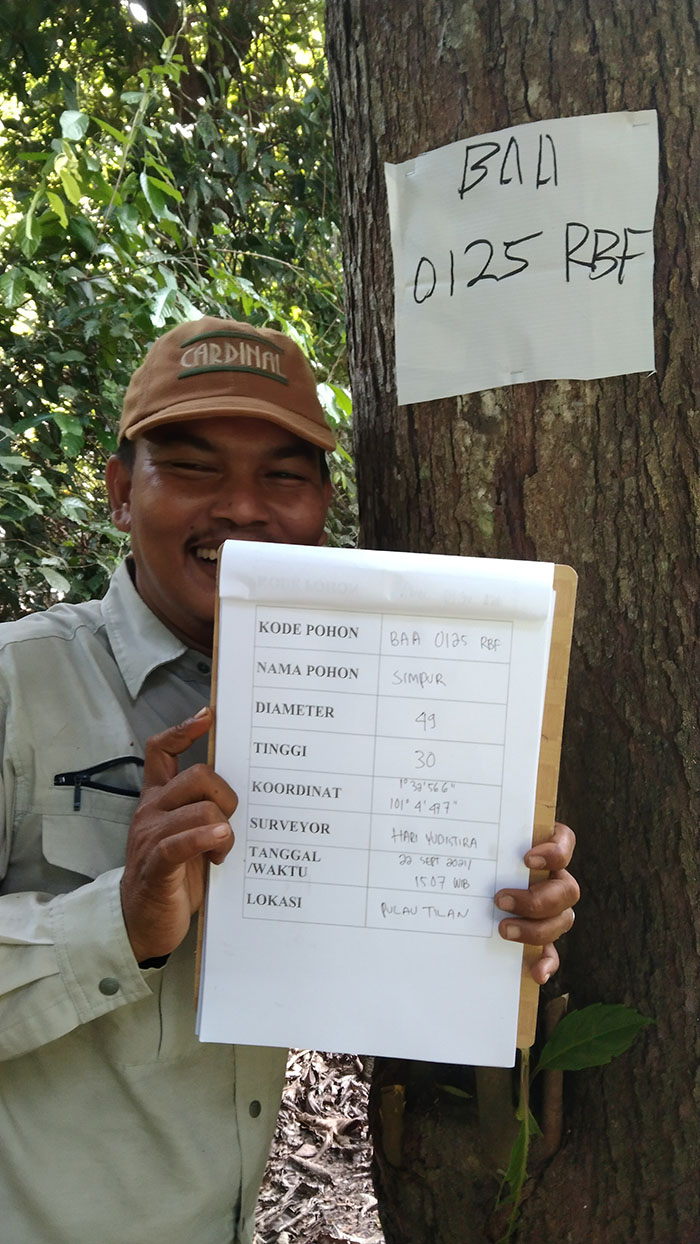 BAA
0125 RBF
CARDINAL
KODE POHON BAA 0125 RBF
NAMA POHON SIMPUR
DIAMETER 49
TINGGI 30
KOORDINAT 101° 4'
SURVEYOR HARI YUDISTIRA
TANGGAL /WAKTU 22 SEPT 2021/
15.07 WIB
LOKASI PULAU TILAN